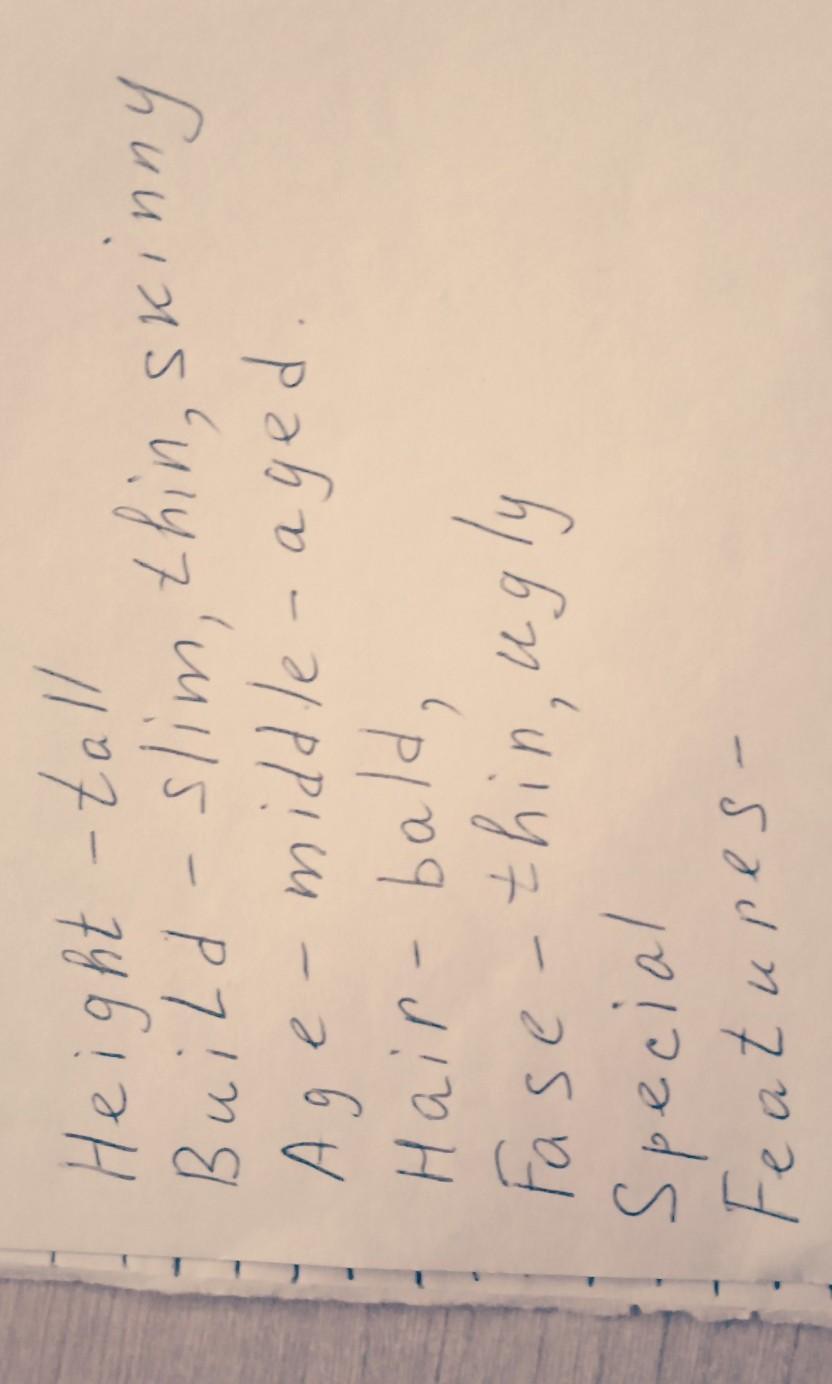 Height - tall
BuiLd - slim, thin, skinny
Age - middle - aged.
Hair - bald,
Fase - thin, ugly
Special
Features -